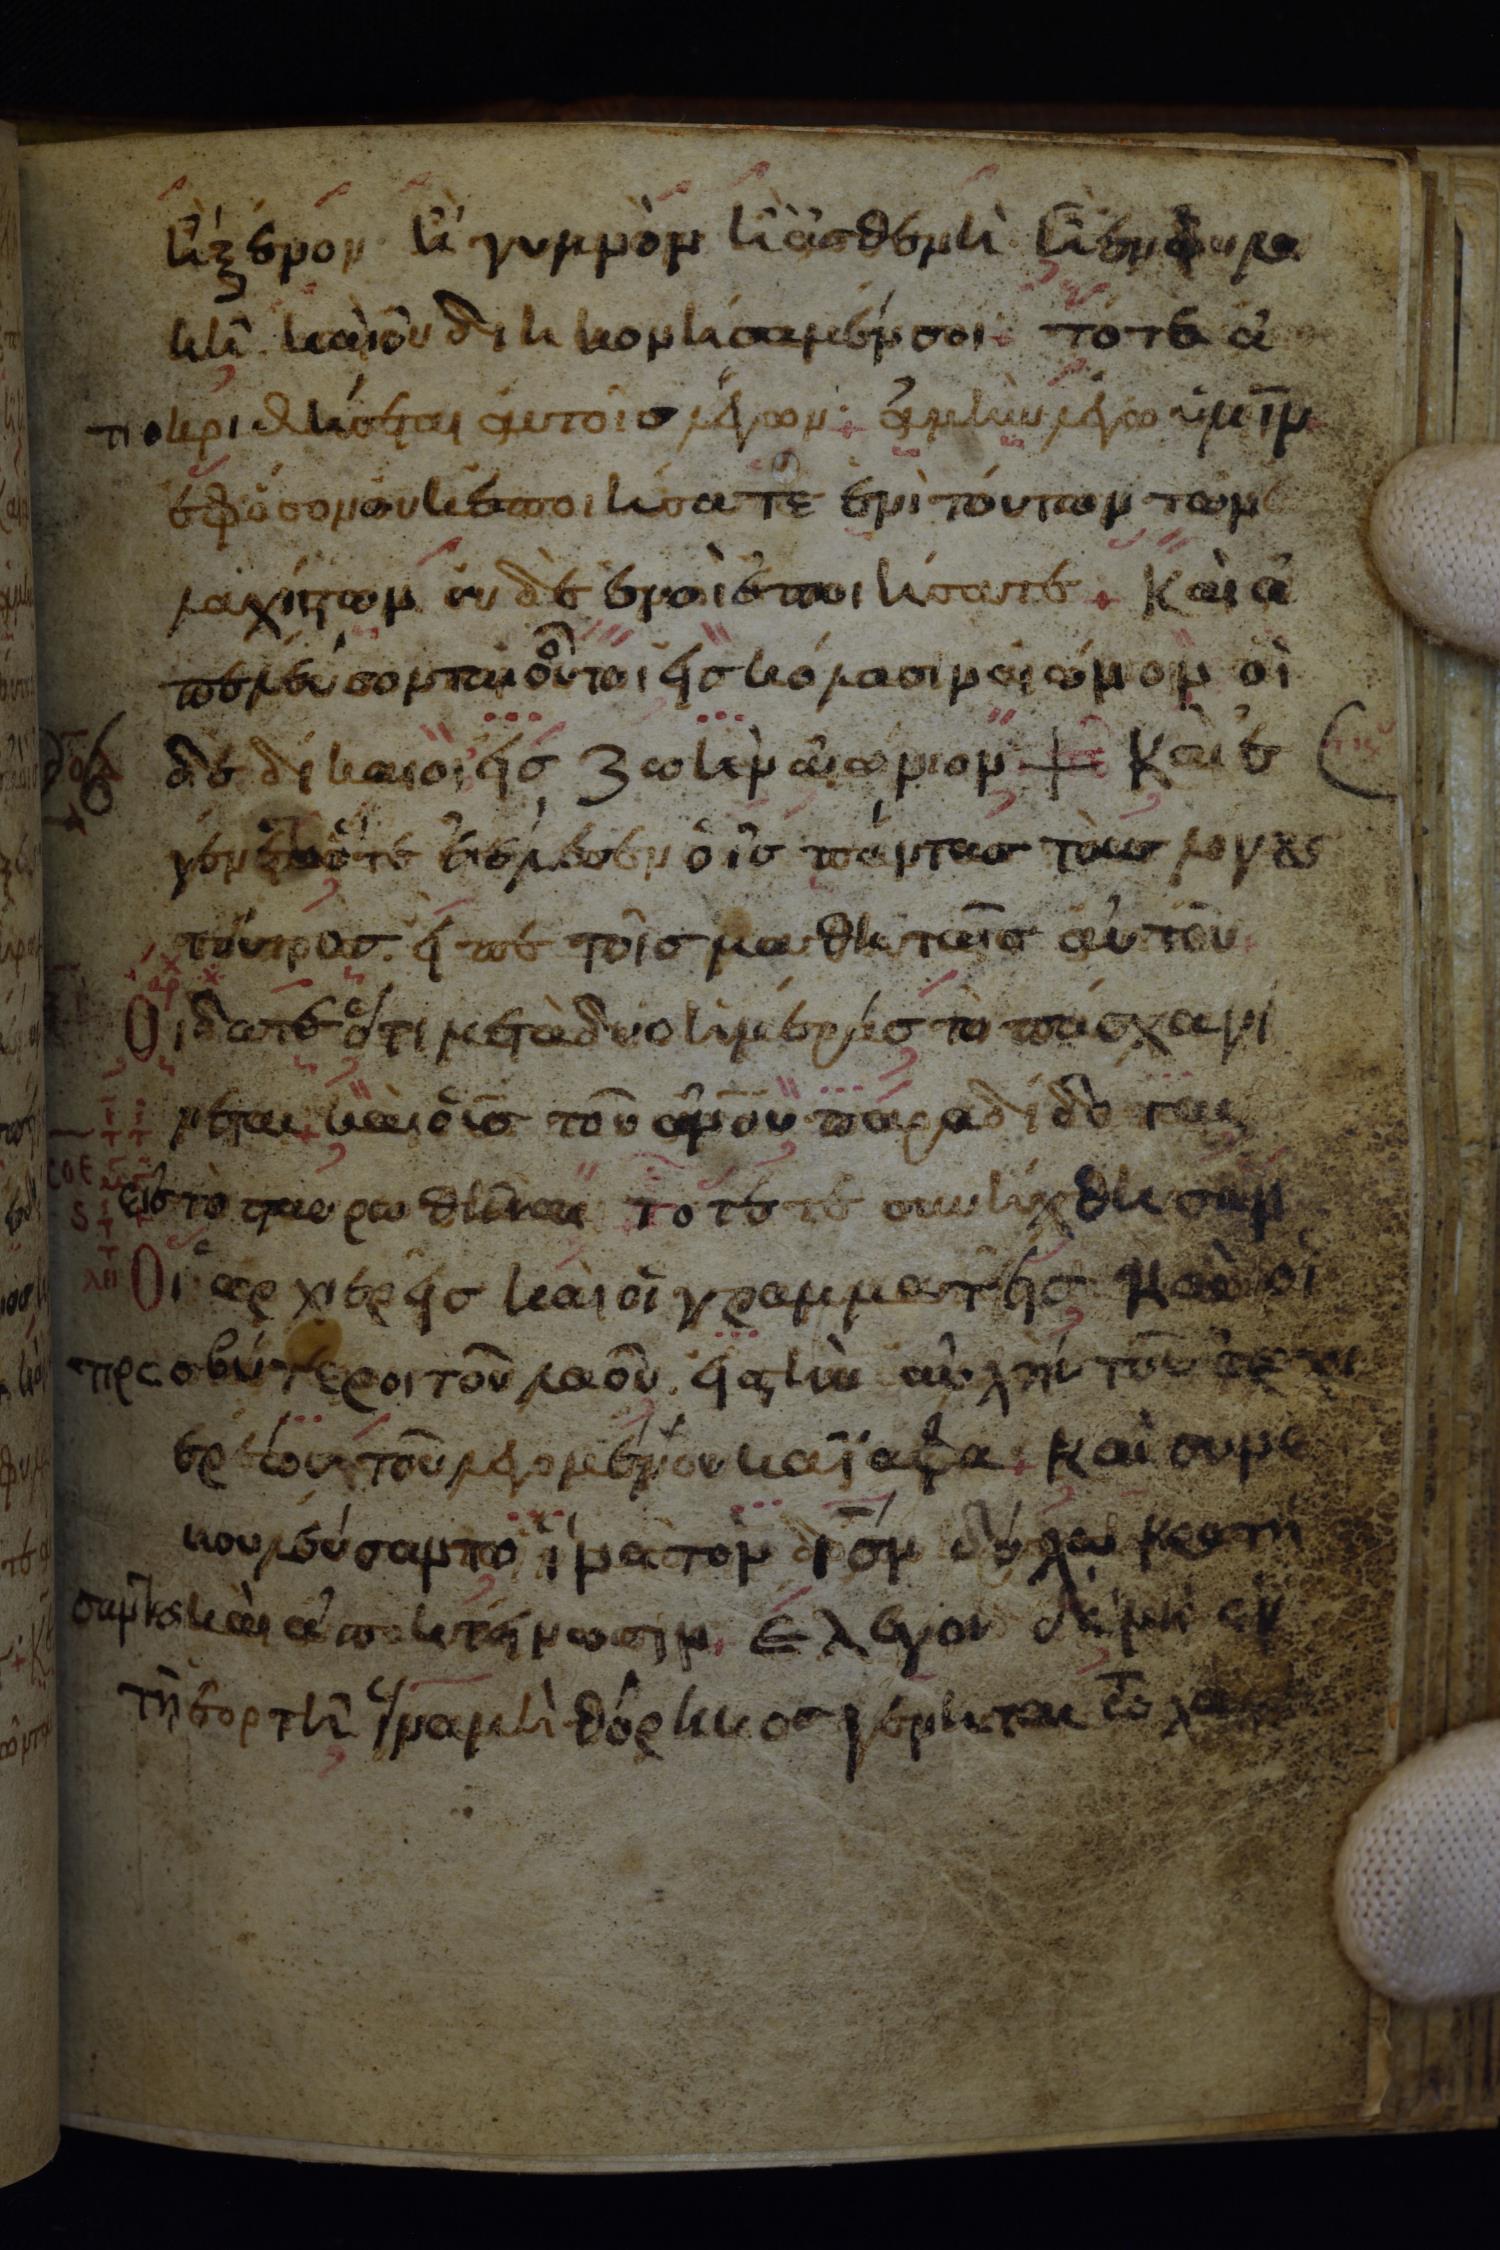 ἢ ξένον ἢ γυμνὸν ἢ ἀσθενῆ ἢ ἐν φυλα
κῆ καὶ οὐ διηκονήσαμέν σοι + τότε ἀ
ποκριθήσεται αὐτοῖς λέγων + ἀμὴν λέγω ὑμῖν
ἐφ ὅσον οὐκ ἐποιήσατε ἑνὶ τούτων τῶν ἐ
λαχίστων οὐδὲ ἐμοὶ ἐποιήσατε + Καὶ ἀ
πελεύσονται οὗτοι εἰς κόλασιν αἰώνιον οἱ
δὲ δίκαιοι εἰς ζωὴν αἰώνιον + Καὶ ἐ
γένετο ὅτε ἐτέλεσεν ὁ ις πάντας τοὺς λόγους
τούτους εἶπε τοῖς μαθηταῖς αὐτοῦ
Οἴδατε ὅτι μετὰ δύο ἡμέρας τὸ πάσχα γί
νεται καὶ ὁ υἱὸς τοῦ ανου παραδίδοται
εἰς τὸ σταυρωθῆναι τότε συνήχθησαν
Οἱ ἀρχιερεῖς καὶ οἱ γραμματεῖς καὶ οἱ
πρεσβύτεροι τοῦ λαοῦ εἰς τὴν αὐλὴν τοῦ ἀρχι
ερέως τοῦ λεγομένου καϊάφα + καὶ συνε
βουλεύσαντο ἵνα τὸν ιν δόλω κρατή
σωσιν καὶ ἀποκτείνωσιν + Ἔλεγον δὲ μὴ ἐν
τῆ ἑορτῆ ἵνα μὴ θόρυβος γένηται τῶ λαῶ